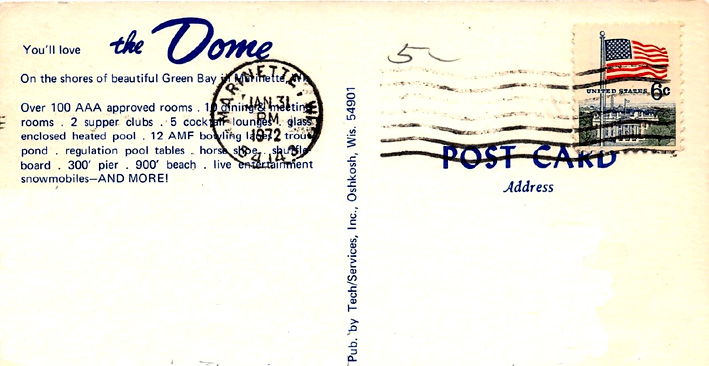 You'll love the Dome
On the shores of beautiful Green Bay in Marinette,
Over 100 AAA approved rooms . 10 dining & meeting
rooms . 2 supper clubs . 5 cocktail lounges . glass
enclosed heated pool . 12 AMF bowling lanes . trout
pond . regulation pool tables . horse shoe . shuffle
board . 300' pier . 900' beach . live entertainment
snowmobiles—AND MORE!
MARINETTE, WIS
JAN 31
PM
1972
54143
Pub. by Tech/Services, Inc., Oshkosh, Wis. 54901
5
UNITED STATES 6c
POST CARD
Address